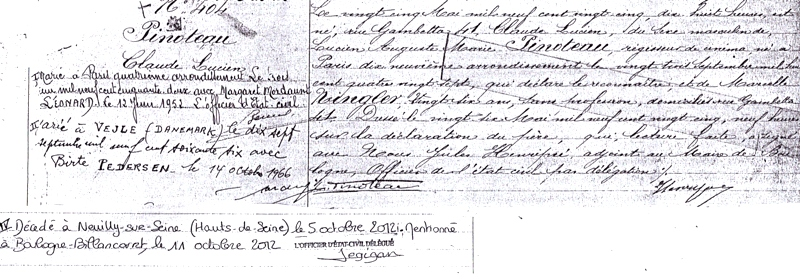 N° 404
Pinoteau
Claude Lucien
Marié à Paris quatrième arrondissement le
mil neuf cent cinquante deux avec Margaret Mordaunt
LÉONARD le 12 Juin 1952 L'officier d'état civil
arié à VEJLE (DANEMARK) le dix sept
septembre mil neuf cent soixante six avec
Birte PEDERSEN le 14 octobre 1966
Décédé à Neuilly-sur-Seine (Hauts-de-Seine) le 5 octobre 2012. Mentionné
à Boulogne-Billancourt, le 11 octobre 2012 L'OFFICIER D'ÉTAT-CIVIL DÉLÉGUÉ
Le vingt cinq Mai mil neuf cent vingt-cinq, dix huit heures, est
né, rue Gambetta Claude Lucien, du sexe masculin, de
Lucien Auguste Marie Pinoteau, régisseur de cinéma, né à
Paris dix neuvième arrondissement le vingt sept
cent quatre vingt sept, qui déclare le reconnaître, et de Marcelle
vingt six ans, sans profession, domiciliés rue Gambetta
Dressé le vingt six Mai mil neuf cent vingt cinq, neuf heures
sur la déclaration du père, qui, lecture faite, a signé
avec Nous, Jules Henripré, adjoint au Maire de Bou-
logne, Officier de l'état civil par délégation.
Pinoteau